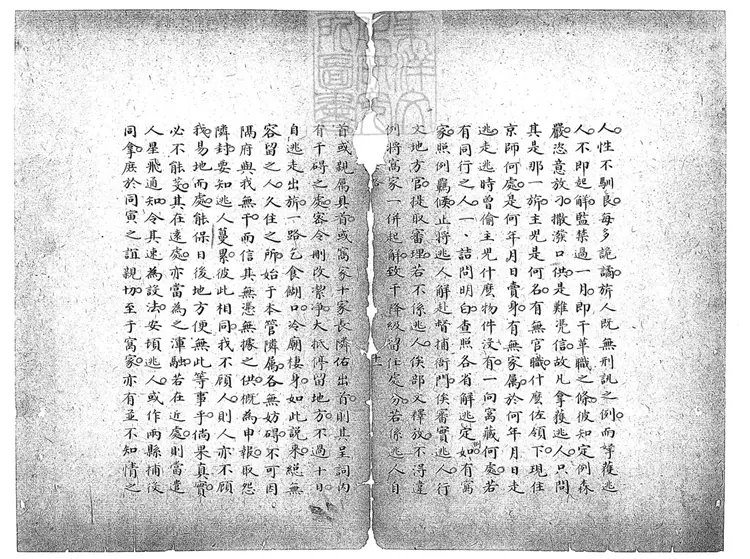 人性不馴良每多詭譎旂人既無刑訊之例而等獲逃
人不即起解監禁過一月即干革職之條彼知定例森
嚴恣意放刁撒潑口供是難慿信故凡拿獲逃人只問
其是那一旂主児是何名有無官職什麼佐領下現住
京師何處是何年月日賣身有無家屬於何年月日走
逃走逃時曾偷主児什麼物件没有一向窩藏何處若
有同行之人一、詰問明白查照各省解逃定例如有窩
家照例羈候止將逃人解赴督捕衙門俟審實逃人行
文地方官提取審理若不係逃人俟部文釋放不得違
例將窩家一併起解致干降級留任處分若係逃人自
首或親属具首或窩家十家長隣佑出首則其呈詞内
有干碍之處容令刪改潔淨大抵停留地方不過十日
自逃走出旂一路乞食餬口冷廟棲身如此説来絕無
容留之人久住之所始于本管隣属各無妨碍不可因
隅府與我無干而信其無憑無據之供概為申報取怨
隣封要知逃人蔓累彼此相同我不顧人則人亦不顧
我易地而處能保日後地方便無此等事乎倘果真實
必不能茭其在遠處亦當為之渾融若在近處則當遣
人星飛通知令其速為設法安頓逃人或作兩縣捕役
同拿庶於同寅之誼親切至于寓家亦有並不知情之